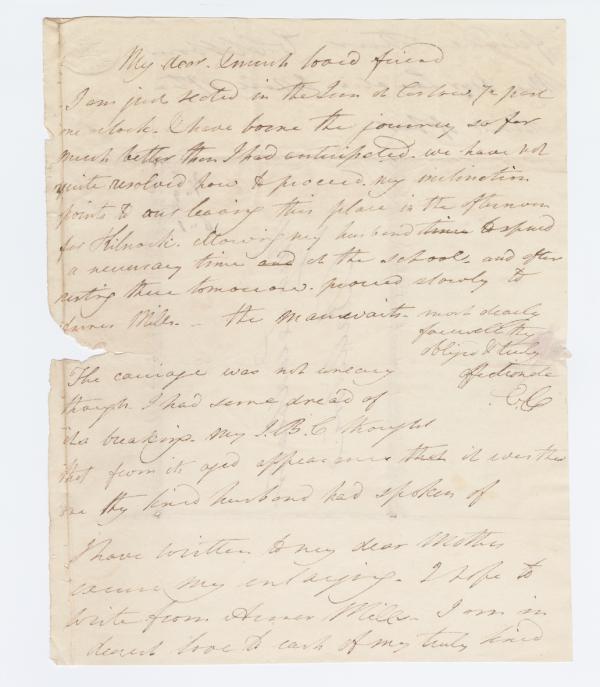 My dear & much loved friend
I am just seated in the Inn at Carlow ½ past
one o'clock. I have borne the journey so far
much better than I had anticipated. we have not
quite resolved how to proceed. my inclination
points to our leaving this place in the afternoon
for Kilnock. allowing my husband time to spend
a necessary time and at the school. and after
resting there tomorrow. proceed slowly to
Mills. — the man waits. most dearly
farewell thy
obliged & truly
E.C
The carriage was not uneasy
though I had some dread of
its breaking. my J.B.C. thought
that from its aged appearance that it was the
one thy kind husband had spoken of
I have written to my dear Mother
excuse my enlarging. I hope to
write from Mills. I am in
dearest love to each of my truly kind